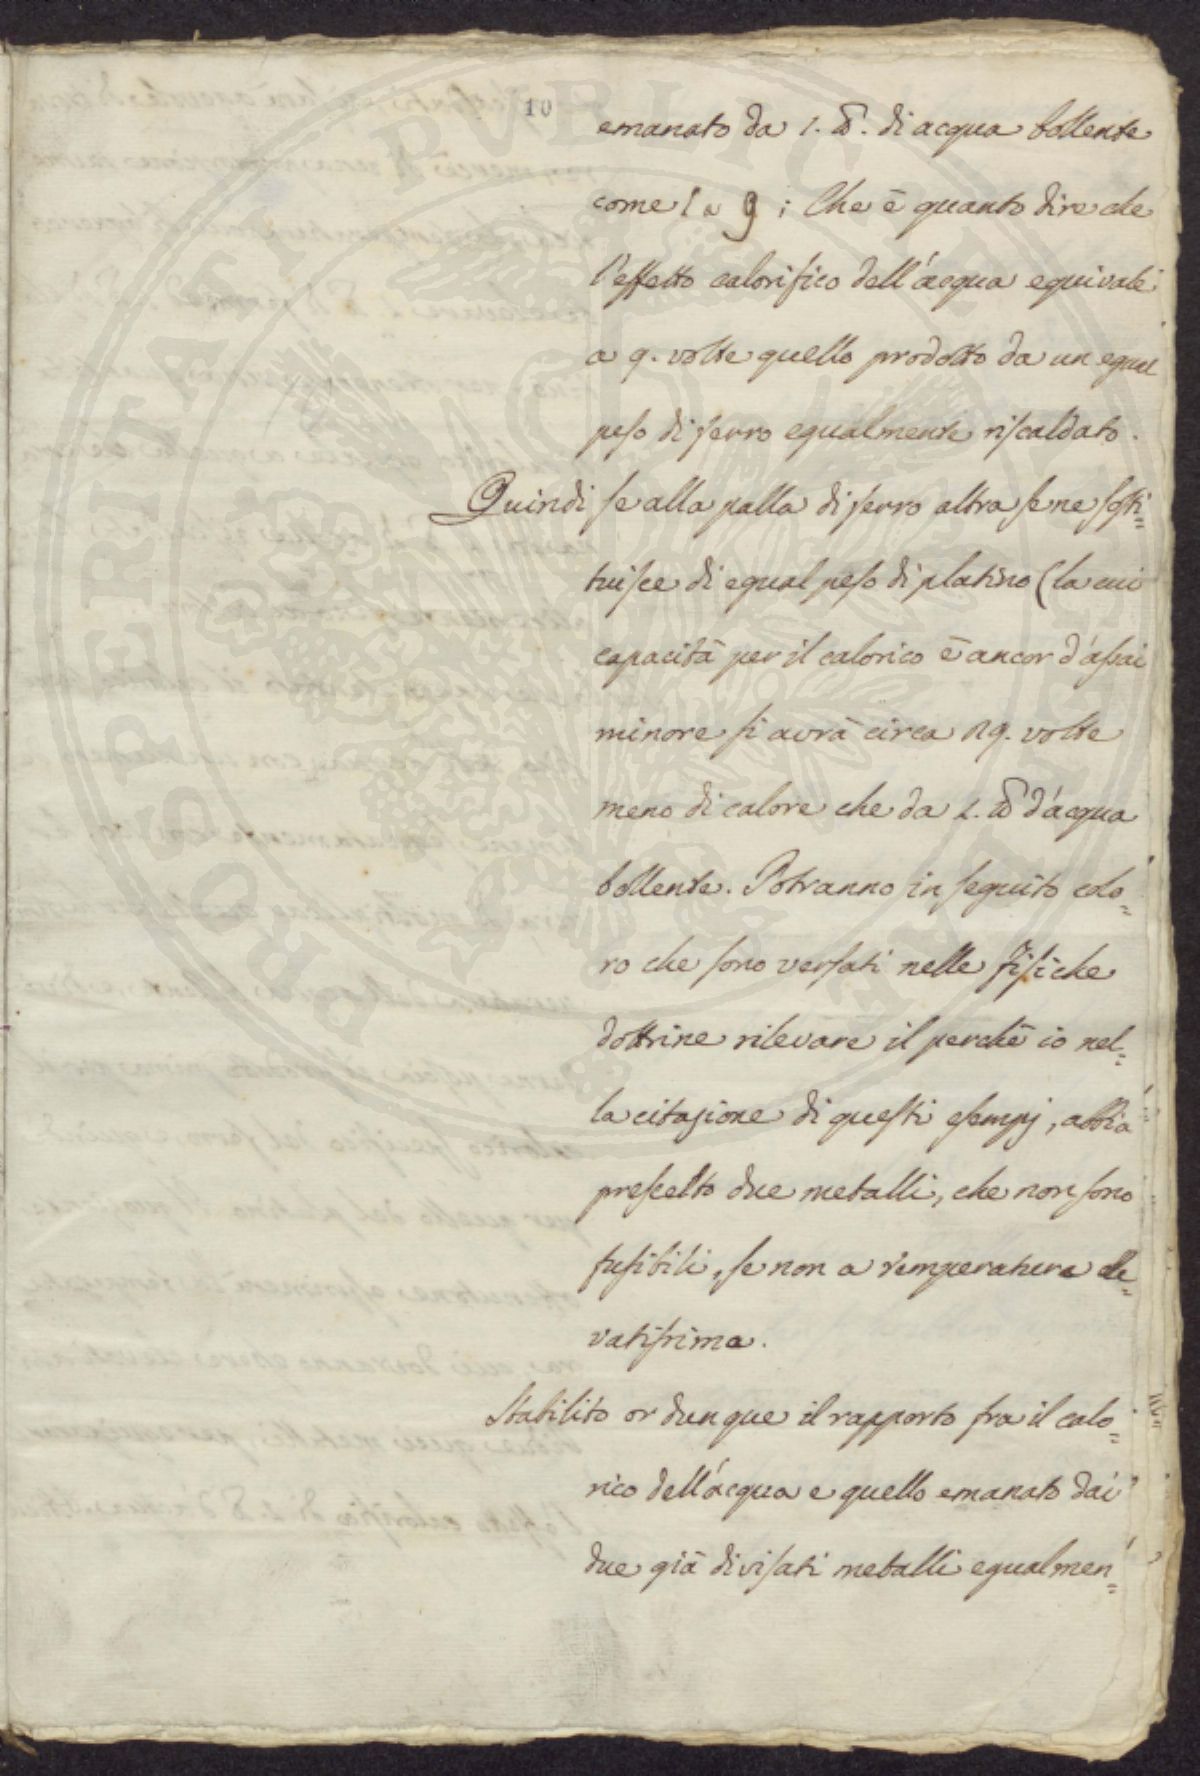 10
emanato da 1. ℔. di acqua bollente
come 1 a 9 ; Che è quanto dire che
l'effetto calorifico dell'acqua equivale
a 9. volte quello prodotto da un egual
peso di ferro egualmente riscaldato.
Quindi se alla palla di ferro altra se ne sosti=
tuisce di egual peso di platino (la cui
capacità per il calorico è ancor d'assai
minore si avrà circa 29. volte
meno di calore che da 1. ℔ d'acqua
bollente. Potranno in seguito colo=
ro che sono versati nelle fisiche
dottrine rilevare il perchè io nel=
la citazione di questi esempj, abbia
prescelto due metalli, che non sono
fusibili, se non a temperatura ele=
vatissima.
Stabilito or dunque il rapporto fra il calo=
rico dell'acqua e quello emanato dai
due già divisati metalli egualmen=
PROSPERITATI PUBLICAE